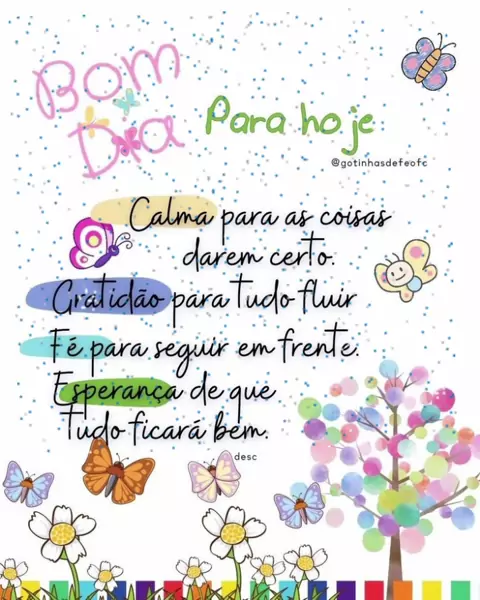 Bom
Dia
Para hoje
@gotinhasdefeofc
Calma para as coisas
darem certo.
Gratidão para tudo fluir
Fé para seguir em frente.
Esperança de que
tudo ficará bem.
desc